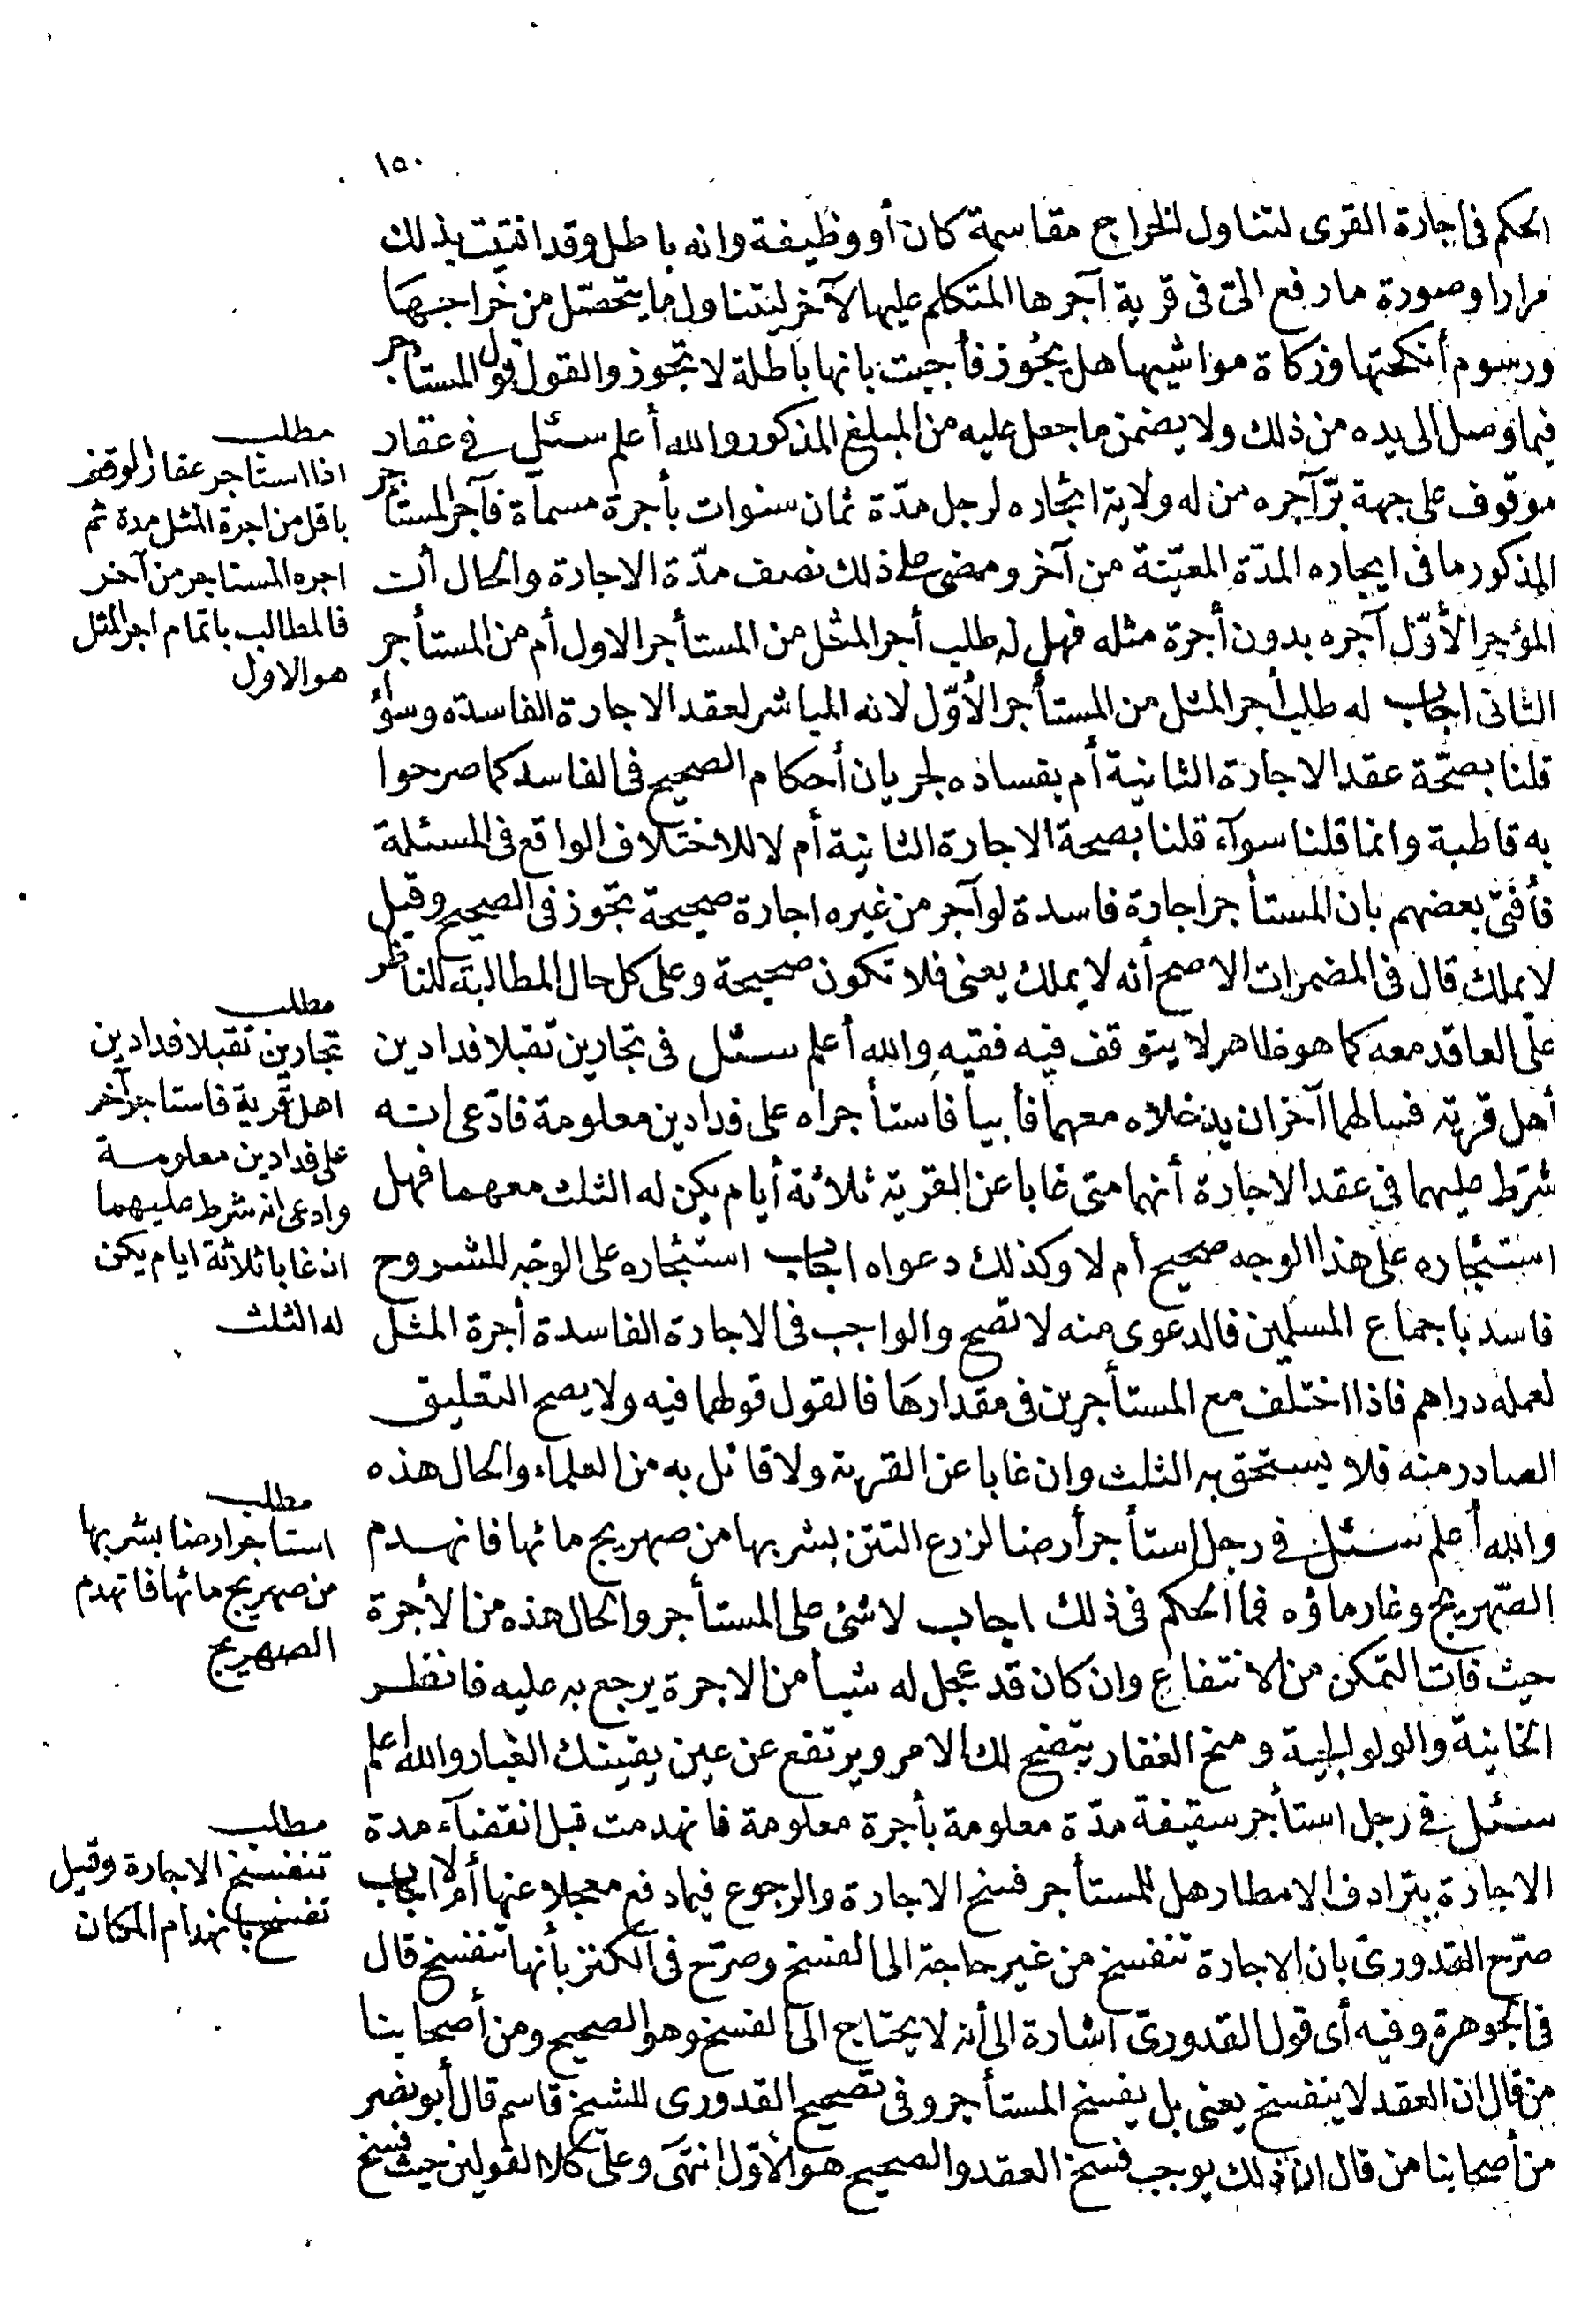 ١٥٠
الحكم فى اجارة القرى لتناول الخراج مقاسمة كان أو وظيفة وانه باطل وقد افتيت بذلك
مرارا وصورة ما رفع الىّ فى قرية آجرها المتكلم عليها لآخر ليتناول ما يتحصّل من خراجها
ورسوم أنكحتها وزكاة مواشيها هل يجُوز فأجبت بانها باطلة لا تجوز والقول قول المستأجر
فيما وصل الى يده من ذلك ولا يضمن ما جعل عليه من المبلغ المذكور والله أعلم سئل فى عقار
موقوف على جهة برّ آجره من له ولاية ايجاره لرجل مدّة ثمان سنوات بأجرة مسمآة فآجر المستأجر
المذكور ما فى ايجاره المدّة المعيّنة من آخر ومضى على ذلك نصف مدّة الاجارة والحال أن
المؤجر الأوّل آجره بدون أجرة مثله فهل له طلب أجر المثل من المستأجر الاول أم من المستأجر
الثانى اجاب له طلب أجر المثل من المستأجر الأوّل لانه المباشر لعقد الاجارة الفاسدة وسوأ
قلنا بصحّة عقد الاجارة الثانية أم بفساده لجريان أحكام الصحيح فى الفاسد كما صرحوا
به قاطبة وانما قلنا سوآء قلنا بصحة الاجارة الثانية أم لا للاختلاف الواقع فى المسئلة
فأفتى بعضهم بان المستأجر اجارة فاسدة لو آجر من غيره اجارة صحيحة تجوز فى الصحيح وقيل
لا يملك قال فى المضمرات الاصح أنه لا يملك يعنى فلا تكون صحيحة وعلى كل حال المطالبة للناظر
على العاقد معه كما هو ظاهر لا يتوقف فيه فقيه والله أعلم سئل فى نجارين تقبلا فدادين
أهل قرية فسالهما آخر ان يدخلاه معهما فأبيا فاستأجراه على فدادين معلومة فادّعى انه
شرط عليهما فى عقد الاجارة أنهما متى غابا عن القرية ثلاثة أيام يكن له الثلث معهما فهل
استئجاره على هذا الوجه صحيح أم لا وكذلك دعواه اجاب استئجاره على الوجه المشروح
فاسد باجماع المسلمين فالدعوى منه لا تصح والواجب فى الاجارة الفاسدة أجرة المثل
لعمله دراهم فاذا اختلف مع المستأجرين فى مقدارها فالقول قولهما فيه ولا يصح التعليق
الصادر منه فلا يستحق به الثلث وان غابا عن القرية ولا قائل به من العلماء والحال هذه
والله أعلم سئل فى رجل استأجر أرضا لزرع التتن بشربها من صهريج مائها فانهدم
الصّهريج وغار ماؤه فما الحكم فى ذلك اجاب لا شئ على المستأجر والحال هذه من الأجرة
حيث فات التمكن من الانتفاع وان كان قد عجل له شيأ من الاجرة يرجع به عليه فانظر
الخانية والولوالجية ومنح الغفار يتضح لك الامر ويرتفع عن عين يقينك الغبار والله أعلم
سئل فى رجل استأجر سقيفة مدّة معلومة بأجرة معلومة فانهدمت قبل انقضآء مدة
الاجارة بترادف الامطار هل للمستأجر فسخ الاجارة والرجوع فيما دفع معجلا عنها أم لا اجاب
صرّح القدورىّ بان الاجارة تنفسخ من غير حاجة الى الفسخ وصرّح فى الكنز بأنها تنفسخ قال
فى الجوهرة وفيه أى قول القدورىّ اشارة الى أنه لا يحتاج الى الفسخ وهو الصحيح ومن أصحابنا
من قال ان العقد لا ينفسخ يعنى بل يفسخ المستأجر وفى تصحيح القدورى للشيخ قاسم قال أبو نصر
من أصحابنا من قال ان ذلك يوجب فسخ العقد والصحيح هو الأوّل انتهى وعلى كلا القولين حيث فسخ
مطلب
اذا استاجر عقار الوقف
باقل من اجرة المثل مدة ثم
اجره المستاجر من آخر
فالمطالب باتمام اجر المثل
هو الاول
مطلب
نجارين تقبلا فدادين
اهل قرية فاستاجر آخر
على فدادين معلومة
وادعى انه شرط عليهما
ان غابا ثلاثة ايام يكن
له الثلث
مطلب
استاجر ارضا بشربها
من صهريج مائها فانهدم
الصهريج
مطلب
تنفسخ الاجارة وقيل
تفسخ بانهدام المكان